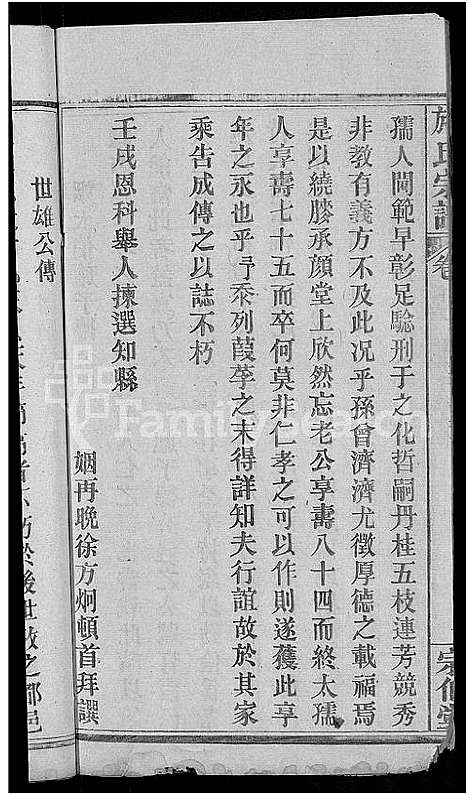 施氏宗譜
卷
孺人閫範早彰足驗刑于之化哲嗣丹桂五枝連芳競秀
非教有義方不及此况乎孫曾濟濟尤徵厚德之載福焉
是以繞膝承顔堂上欣然忘老公享壽八十四而終太孺
人享壽七十五而卒何莫非仁孝之可以作則遂獲此享
年之永也乎予忝列葭莩之末得詳知夫行誼故於其家
乘告成傳之以誌不朽
壬戌恩科舉人揀選知縣
姻再晚徐方炯頓首拜譔
世雄公傳
於後世
之鄉邑
FamilySearch